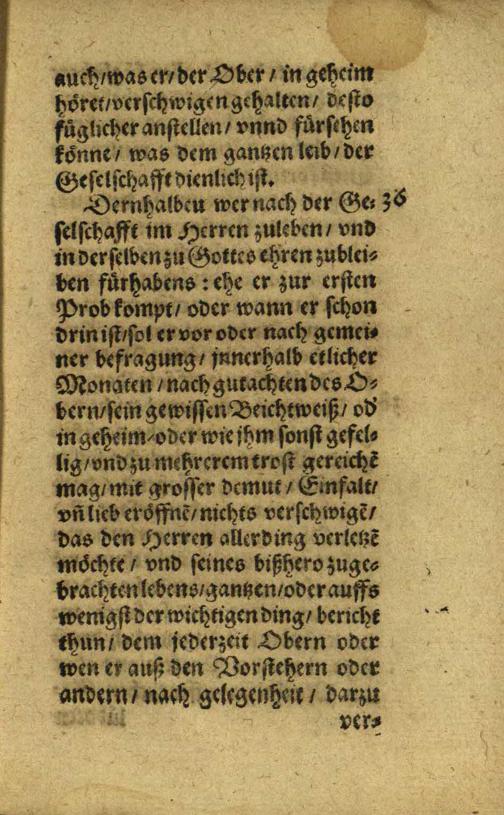 auch/was er/der Ober/ in geheim
höret/verschwigen gehalten/ desto
füglicher anstellen/ vnnd fürsehen
könne/ was dem gantzen leib/der
Geselschafft dienlich ist.
Dernhalbeu wer nach der Ge- 36
selschafft im Herren zuleben/ vnd
in derselben zu Gottes ehren zublei-
ben fürhabens: ehe er zur ersten
Prob kompt/ oder wann er schon
drin ist/sol er vor oder nach gemei-
ner befragung/ jnnerhalb etlicher
Monaten/nach gutachten des O-
bern/sein gewissen Beichtweiß/ od'
in geheim/oder wie jhm sonst gefel-
lig/vnd zu mehrerem trost gereichẽ
mag/mit grosser demut/ Einfalt/
vñ lieb eröffnẽ/nichts verschwigẽ/
das den Herren allerding verletzẽ
möchte/ vnd seines bißhero zuge-
brachten lebens/gantzen/oder auffs
wenigst der wichtigen ding/ bericht
thun/ dem jederzeit Obern oder
wen er auß den Vorstehern oder
andern/ nach gelegenheit/ darzu
ver-